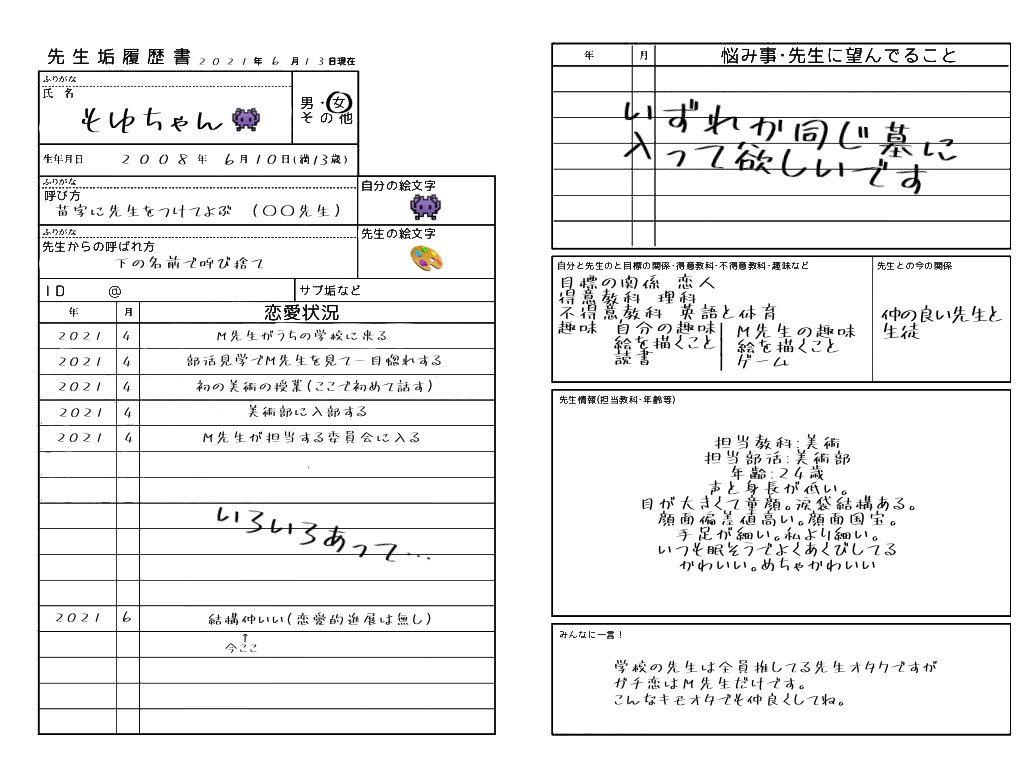 先生垢履歴書 2021年 6月 13日現在
ふりがな
氏 名
そゆちゃん
男・女
その他
生年月日 2008年 6月10日(満13歳)
ふりがな
呼び方
苗字に先生をつけてよぶ (〇〇先生)
自分の絵文字
ふりがな
先生からの呼ばれ方
下の名前で呼び捨て
先生の絵文字
ID @
サブ垢など
年 月 恋愛状況
2021 4 M先生がうちの学校に来る
2021 4 部活見学でM先生を見て一目惚れする
2021 4 初の美術の授業(ここで初めて話す)
2021 4 美術部に入部する
2021 4 M先生が担当する委員会に入る
いろいろあって…
2021 6 結構仲いい(恋愛的進展は無し)
↑
今ここ
年 月 悩み事・先生に望んでること
いずれか同じ墓に
入って欲しいです
自分と先生のと目標の関係・得意教科・不得意教科・趣味など
目標の関係 恋人
得意教科 理科
不得意教科 英語と体育
趣味 自分の趣味 M先生の趣味
絵を描くこと 絵を描くこと
読書 ゲーム
先生との今の関係
仲の良い先生と
生徒
先生情報(担当教科・年齢等)
担当教科:美術
担当部活:美術部
年齢:24歳
声と身長が低い。
目が大きくて童顔。涙袋結構ある。
顔面偏差値高い。顔面国宝。
手足が細い。私より細い。
いつも眠そうでよくあくびしてる
かわいい。めちゃかわいい
みんなに一言！
学校の先生は全員推してる先生オタクですが
ガチ恋はM先生だけです。
こんなキモオタでも仲良くしてね。